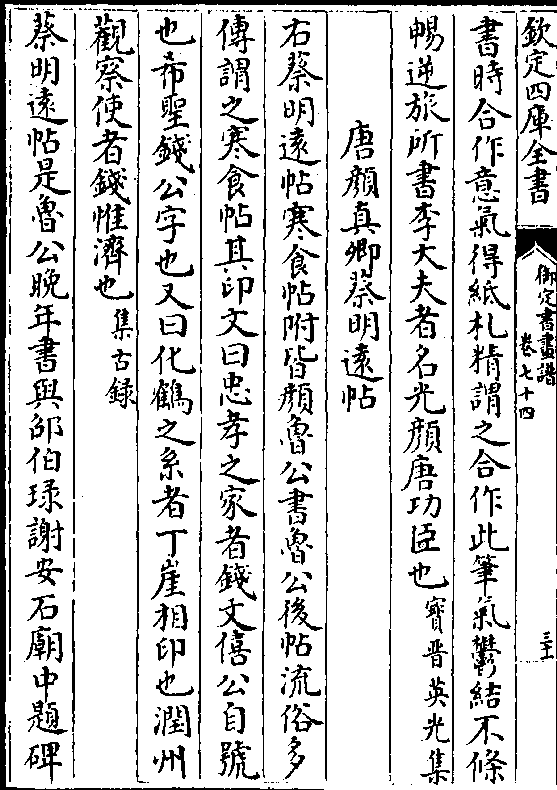 欽定四庫全書
御定書畫譜
卷七十四
三十
書時合作意氣得紙札精謂之合作此筆氣鬱結不條
暢逆旅所書李大夫者名光顏唐功臣也寶晉英光集
唐顏真卿蔡明遠帖
右蔡明遠帖寒食帖附皆顏魯公書魯公後帖流俗多
傳謂之寒食帖其印文曰忠孝之家者錢文僖公自號
也希聖錢公字也又曰化鶴之系者丁崖相印也潤州
觀察使者錢惟濟也集古錄
蔡明遠帖是魯公晚年書與邠伯琭謝安石廟中題碑